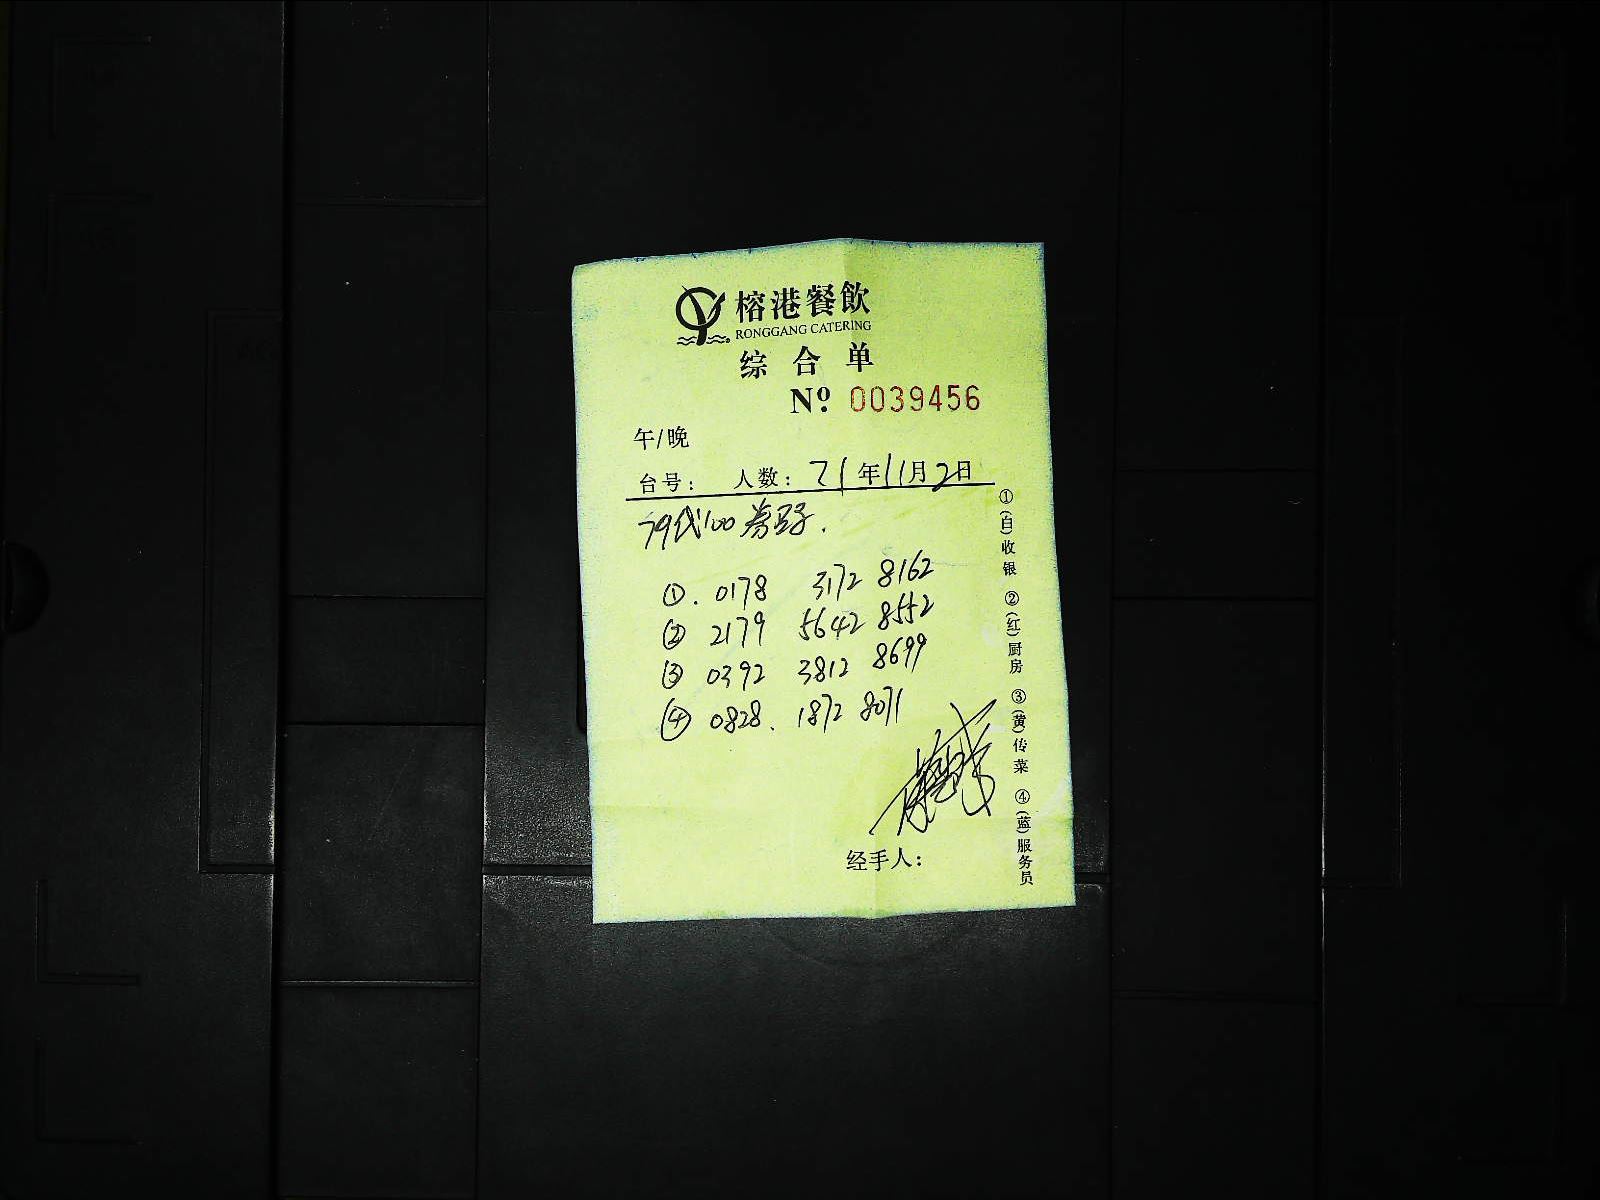 榕港餐飲
RONGGANG CATERING
综合单
Nº. 0039456
午/晚
台号: 人数: 21年11月2日
79代100券号.
①. 0178 3172 8162
② 2179 5642 8552
③ 0392 3812 8699
④ 0828. 1872 8071
经手人:
①(白)收银 ②(红)厨房 ③(黄)传菜 ④(蓝)服务员